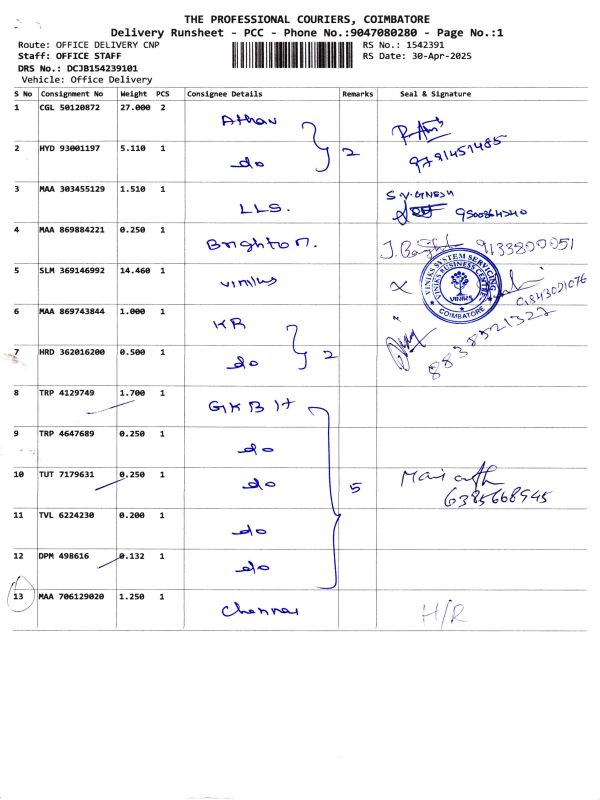 THE PROFESSIONAL COURIERS, COIMBATORE
Delivery Runsheet - PCC - Phone No.:9047080280 - Page No.:1
Route: OFFICE DELIVERY CNP RS No.: 1542391
Staff: OFFICE STAFF RS Date: 30-Apr-2025
DRS No.: DCJB154239101
Vehicle: Office Delivery
S No Consignment No Weight PCS Consignee Details Remarks Seal & Signature
1 CGL 50120872 27.000 2 Athav
2 HYD 93001197 5.110 1 do 2 9791451485
3 MAA 303455129 1.510 1 LLS. S.V.GNESH
4 MAA 869884221 0.250 1 Brighton. 9133800051
5 SLM 369146992 14.460 1 viniks VINIKS SYSTEM SERVICING VINIKS BUSINESS CENTRE VINIKS COIMBATORE 9843091076
6 MAA 869743844 1.000 1 KR
7 HRD 362016200 0.500 1 do 2 8838521322
8 TRP 4129749 1.700 1 GKB It
9 TRP 4647689 0.250 1 do
10 TUT 7179631 0.250 1 do 5 6385668945
11 TVL 6224230 0.200 1 do
12 DPM 498616 0.132 1 do
13 MAA 706129020 1.250 1 Chennai H/R